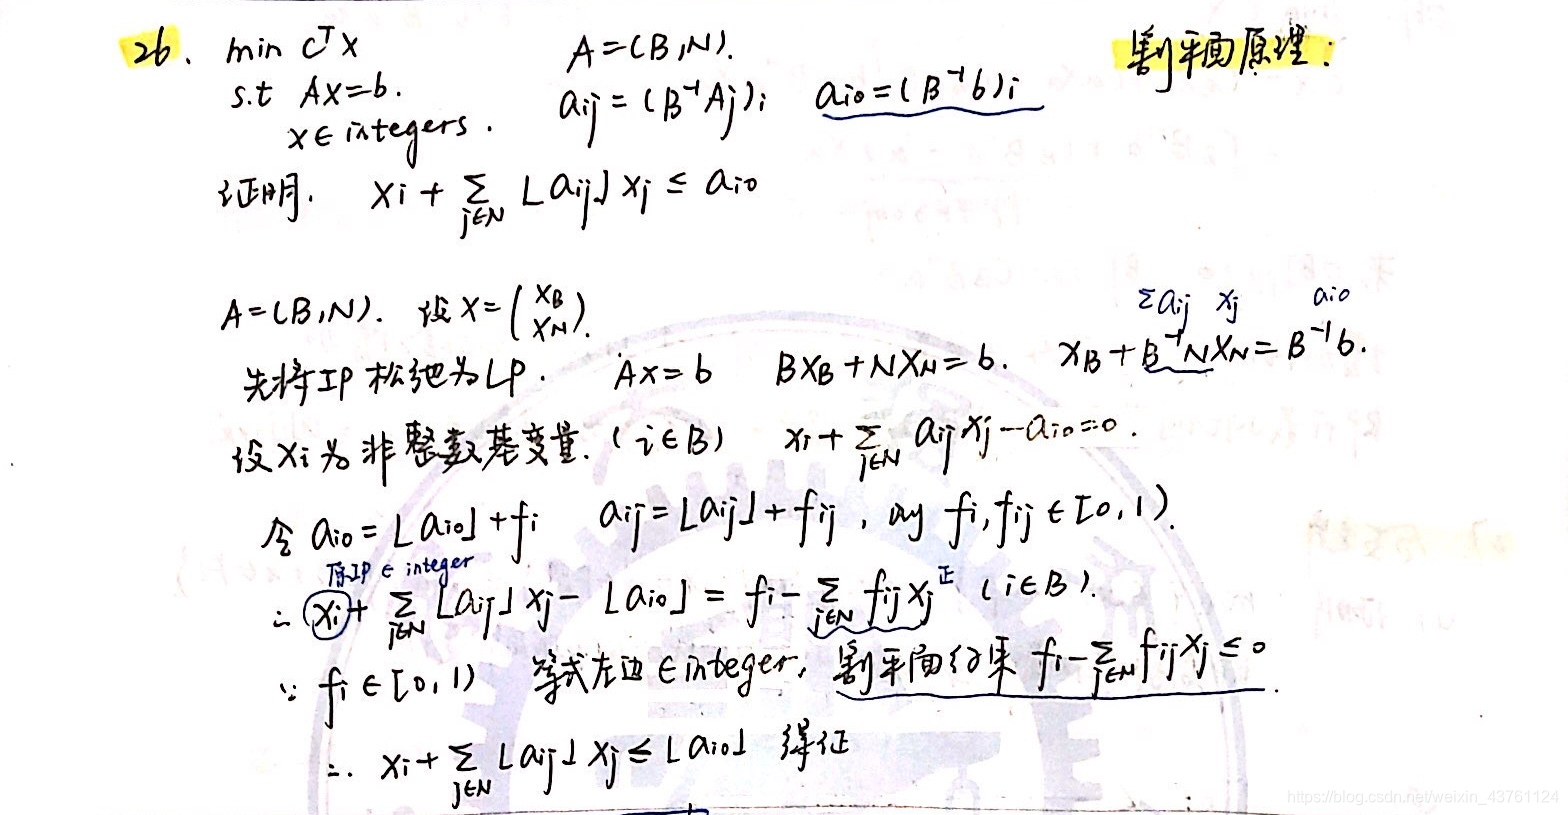 26. min cᵀx A=(B,N). 割平面原理:
s.t Ax=b. aij=(B⁻¹Aj)i ai0=(B⁻¹b)i
x∈integers.
证明. xi+∑j∈N ⌊aij⌋xj≤ai0
Σaij xj ai0
A=(B,N). 设x=(xB xN).
先将IP松弛为LP. Ax=b BxB+NxN=b. xB+B⁻¹NxN=B⁻¹b.
设xi为非整数基变量. (i∈B) xi+∑j∈N aijxj-ai0=0.
令ai0=⌊ai0⌋+fi aij=⌊aij⌋+fij, fi,fij∈[0,1).
原IP∈integer
∴ xi+∑j∈N⌊aij⌋xj-⌊ai0⌋=fi-∑j∈N fijxj 正 (i∈B).
∵ fi∈[0,1) 等式左边∈integer, 割平面约束 fi-∑j∈N fijxj≤0.
∴ xi+∑j∈N⌊aij⌋xj≤⌊ai0⌋ 得证
https://blog.csdn.net/weixin_43761124